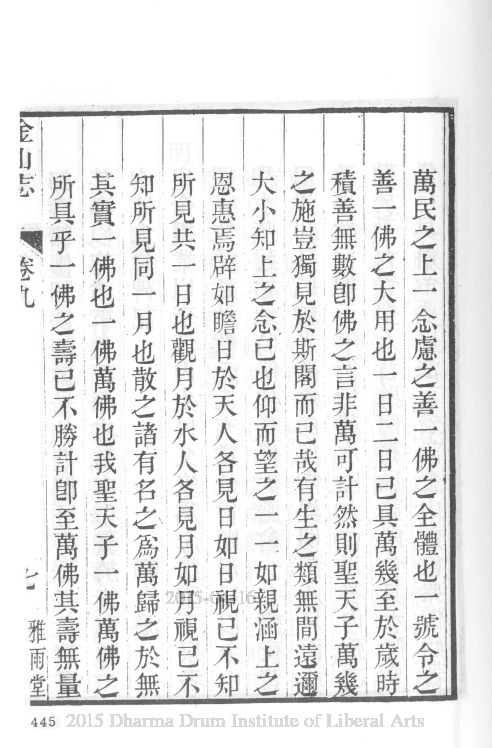 萬民之上一念慮之善一佛之全體也一號令之
善一佛之大用也一日二日已具萬幾至於歲時
積善無數卽佛之言非萬可計然則聖天子萬幾
之施豈獨見於斯閣而已哉有生之類無間遠邇
大小知上之念已也仰而望之一一如親涵上之
恩惠焉辟如瞻日於天人各見日如日視已不知
所見共一日也觀月於水人各見月如月視已不
知所見同一月也散之諸有名之爲萬歸之於無
其實一佛也一佛萬佛也我聖天子一佛萬佛之
所具乎一佛之壽已不勝計卽至萬佛其壽無量
金山志
卷九
七
雅雨堂
445
2015 Dharma Drum Institute of Liberal Arts